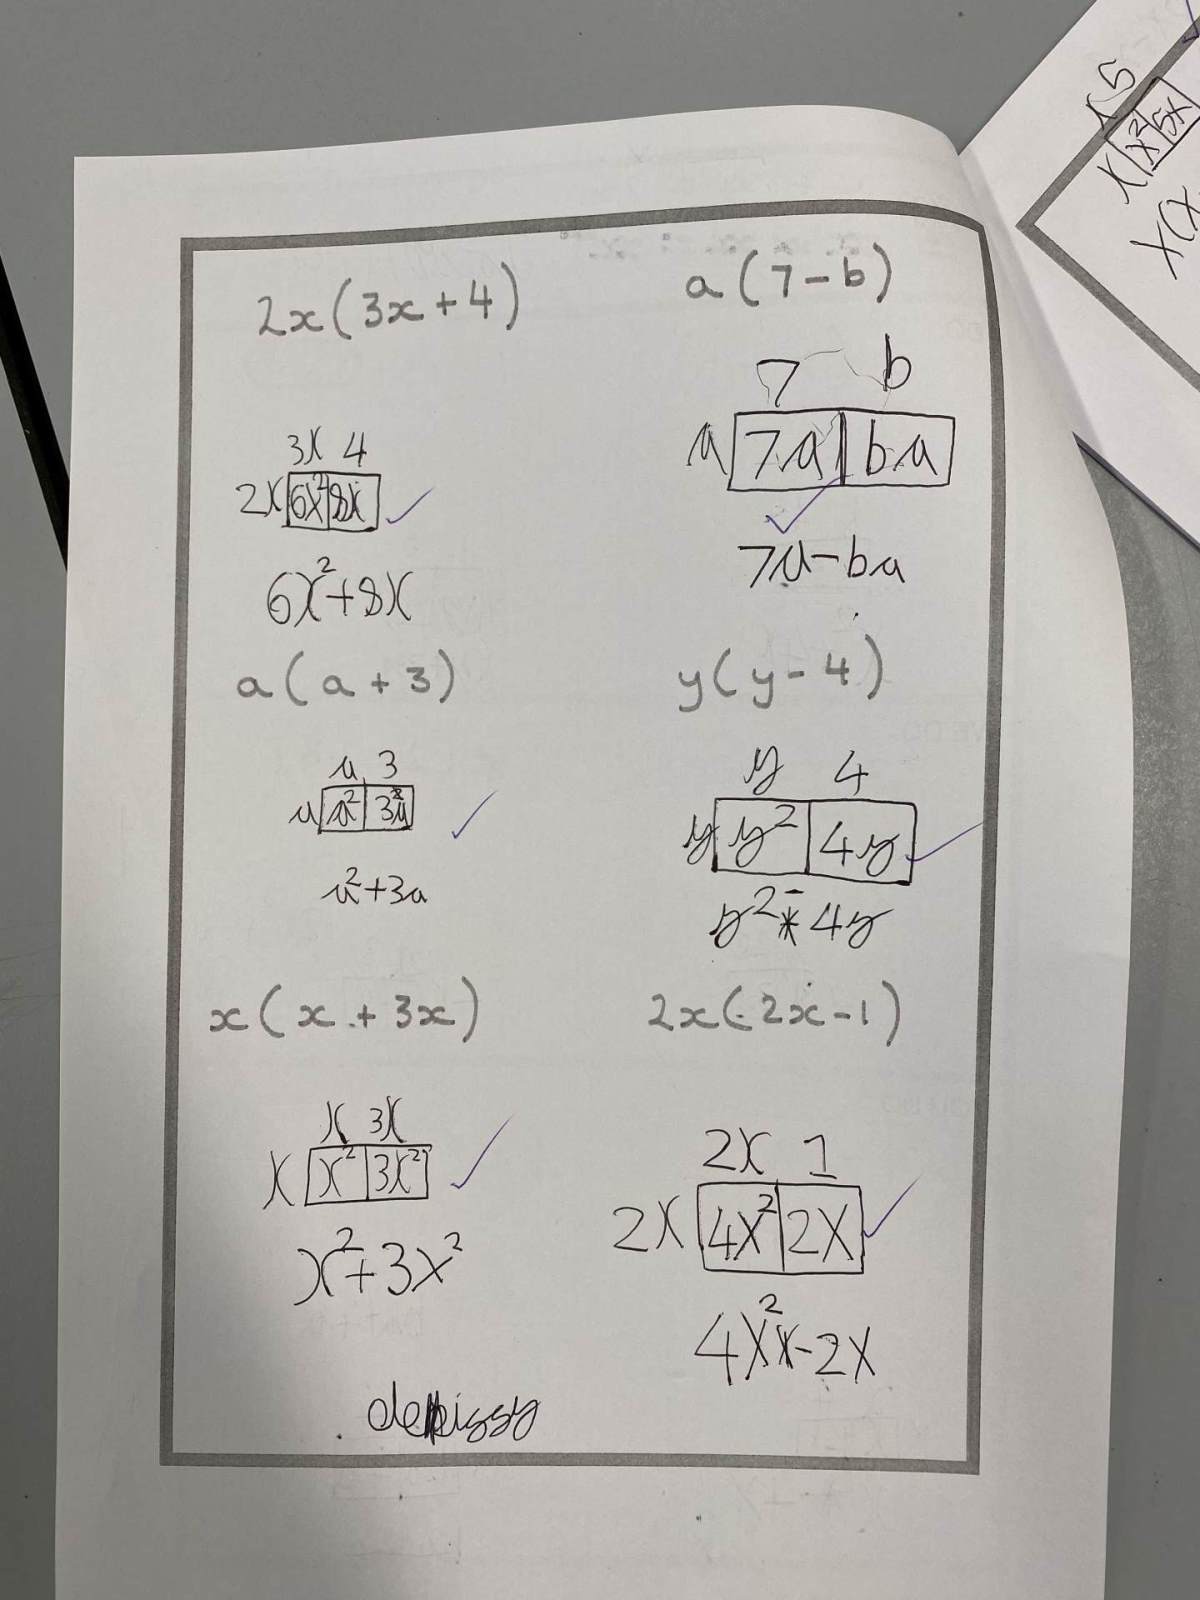 2x(3x+4)
3x 4
2x 6x² 8x
6x²+8x
a(7-b)
7 b
a 7a ba
7a-ba
a(a+3)
a 3
a a² 3a
a²+3a
y(y-4)
y 4
y y² 4y
y²-4y
x(x+3x)
x 3x
x x² 3x²
x²+3x²
2x(2x-1)
2x 1
2x 4x² 2x
4x²-2x
x 5
x x² 5x
x(x